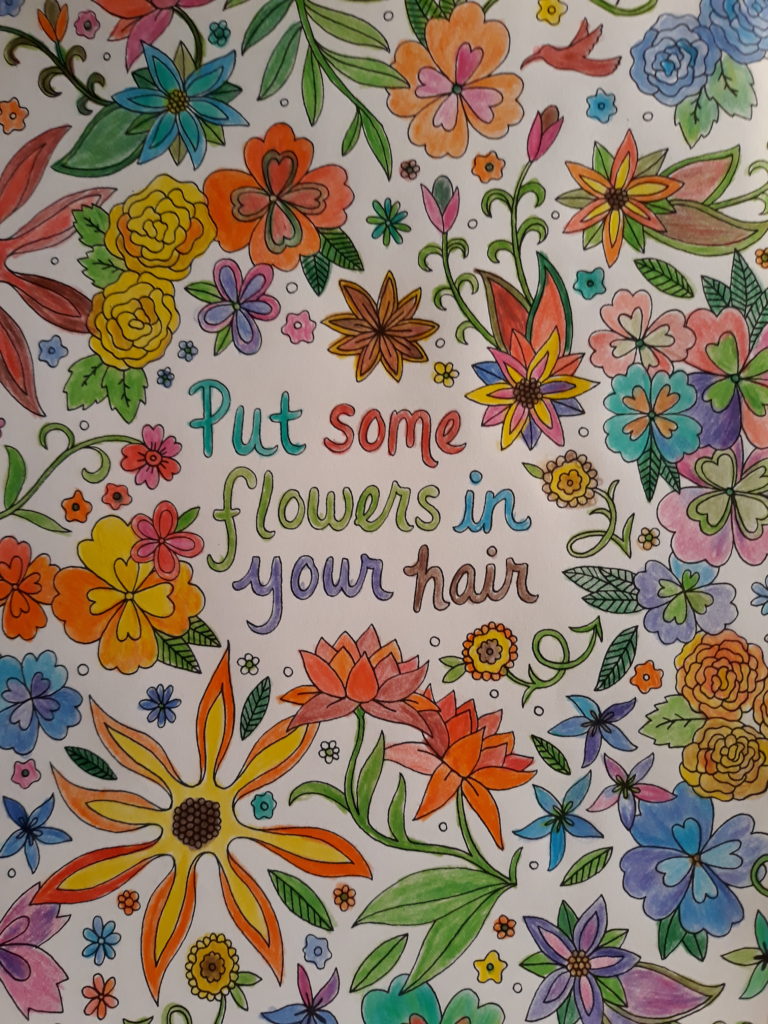 Put some
flowers in
your hair